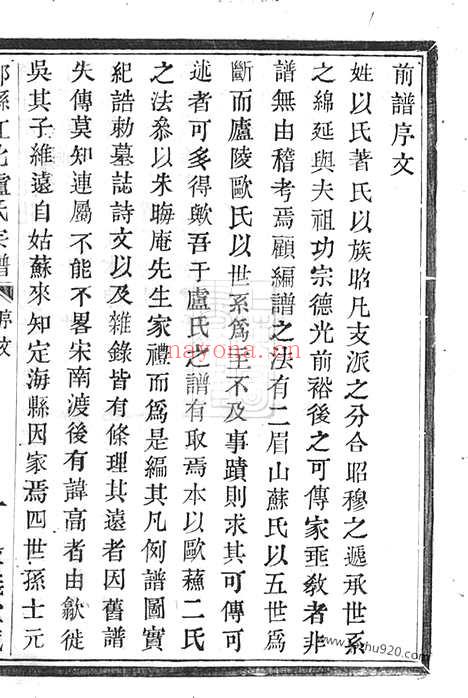 前譜序文
姓以氏著氏以族昭凡支派之分合昭穆之遞承世系
之綿延與夫祖功宗德光前裕後之可傳家垂敎者非
譜無由稽考焉顧編譜之法有二眉山蘇氏以五世爲
斷而廬陵歐氏以世系爲主不及事蹟則求其可傳可
述者可多得歟吾于盧氏之譜有取焉本以歐蘓二氏
之法叅以朱晦庵先生家禮而爲是編其凡例譜圖實
紀誥勅墓誌詩文以及雜錄皆有條理其遠者因舊譜
失傳莫知連屬不能不畧宋南渡後有諱高者由歙徙
吳其子維遠自姑蘇來知定海縣因家焉四世孫士元
江北盧氏宗譜 序文 一
nayona.cn
www.shu920.com